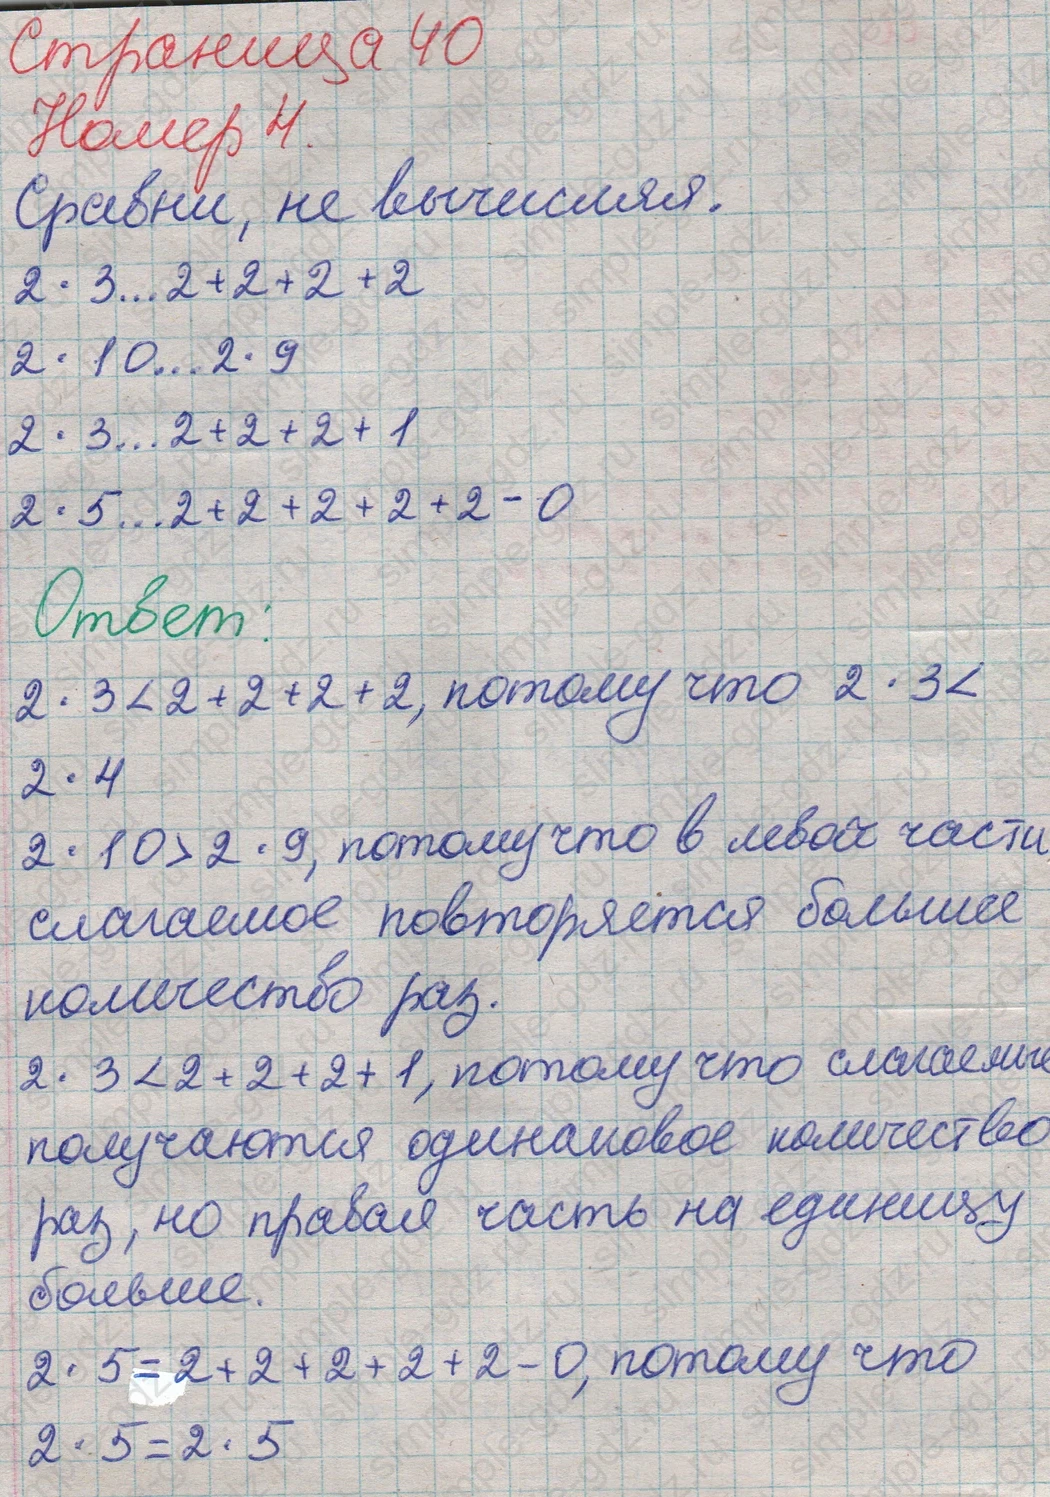 Страница 40
Номер 4.
Сравни, не вычисляя.
2 · 3...2+2+2+2
2 · 10...2 · 9
2 · 3...2+2+2+1
2 · 5...2+2+2+2+2-0
Ответ:
2 · 3<2+2+2+2, потому что 2 · 3<
2 · 4
2 · 10>2 · 9, потому что в левой части
слагаемое повторяется большее
количество раз.
2 · 3<2+2+2+1, потому что слагаемые
получаются одинаковое количество
раз, но правая часть на единицу
больше.
2 · 5=2+2+2+2+2-0, потому что
2 · 5=2 · 5
simple-gdz.ru